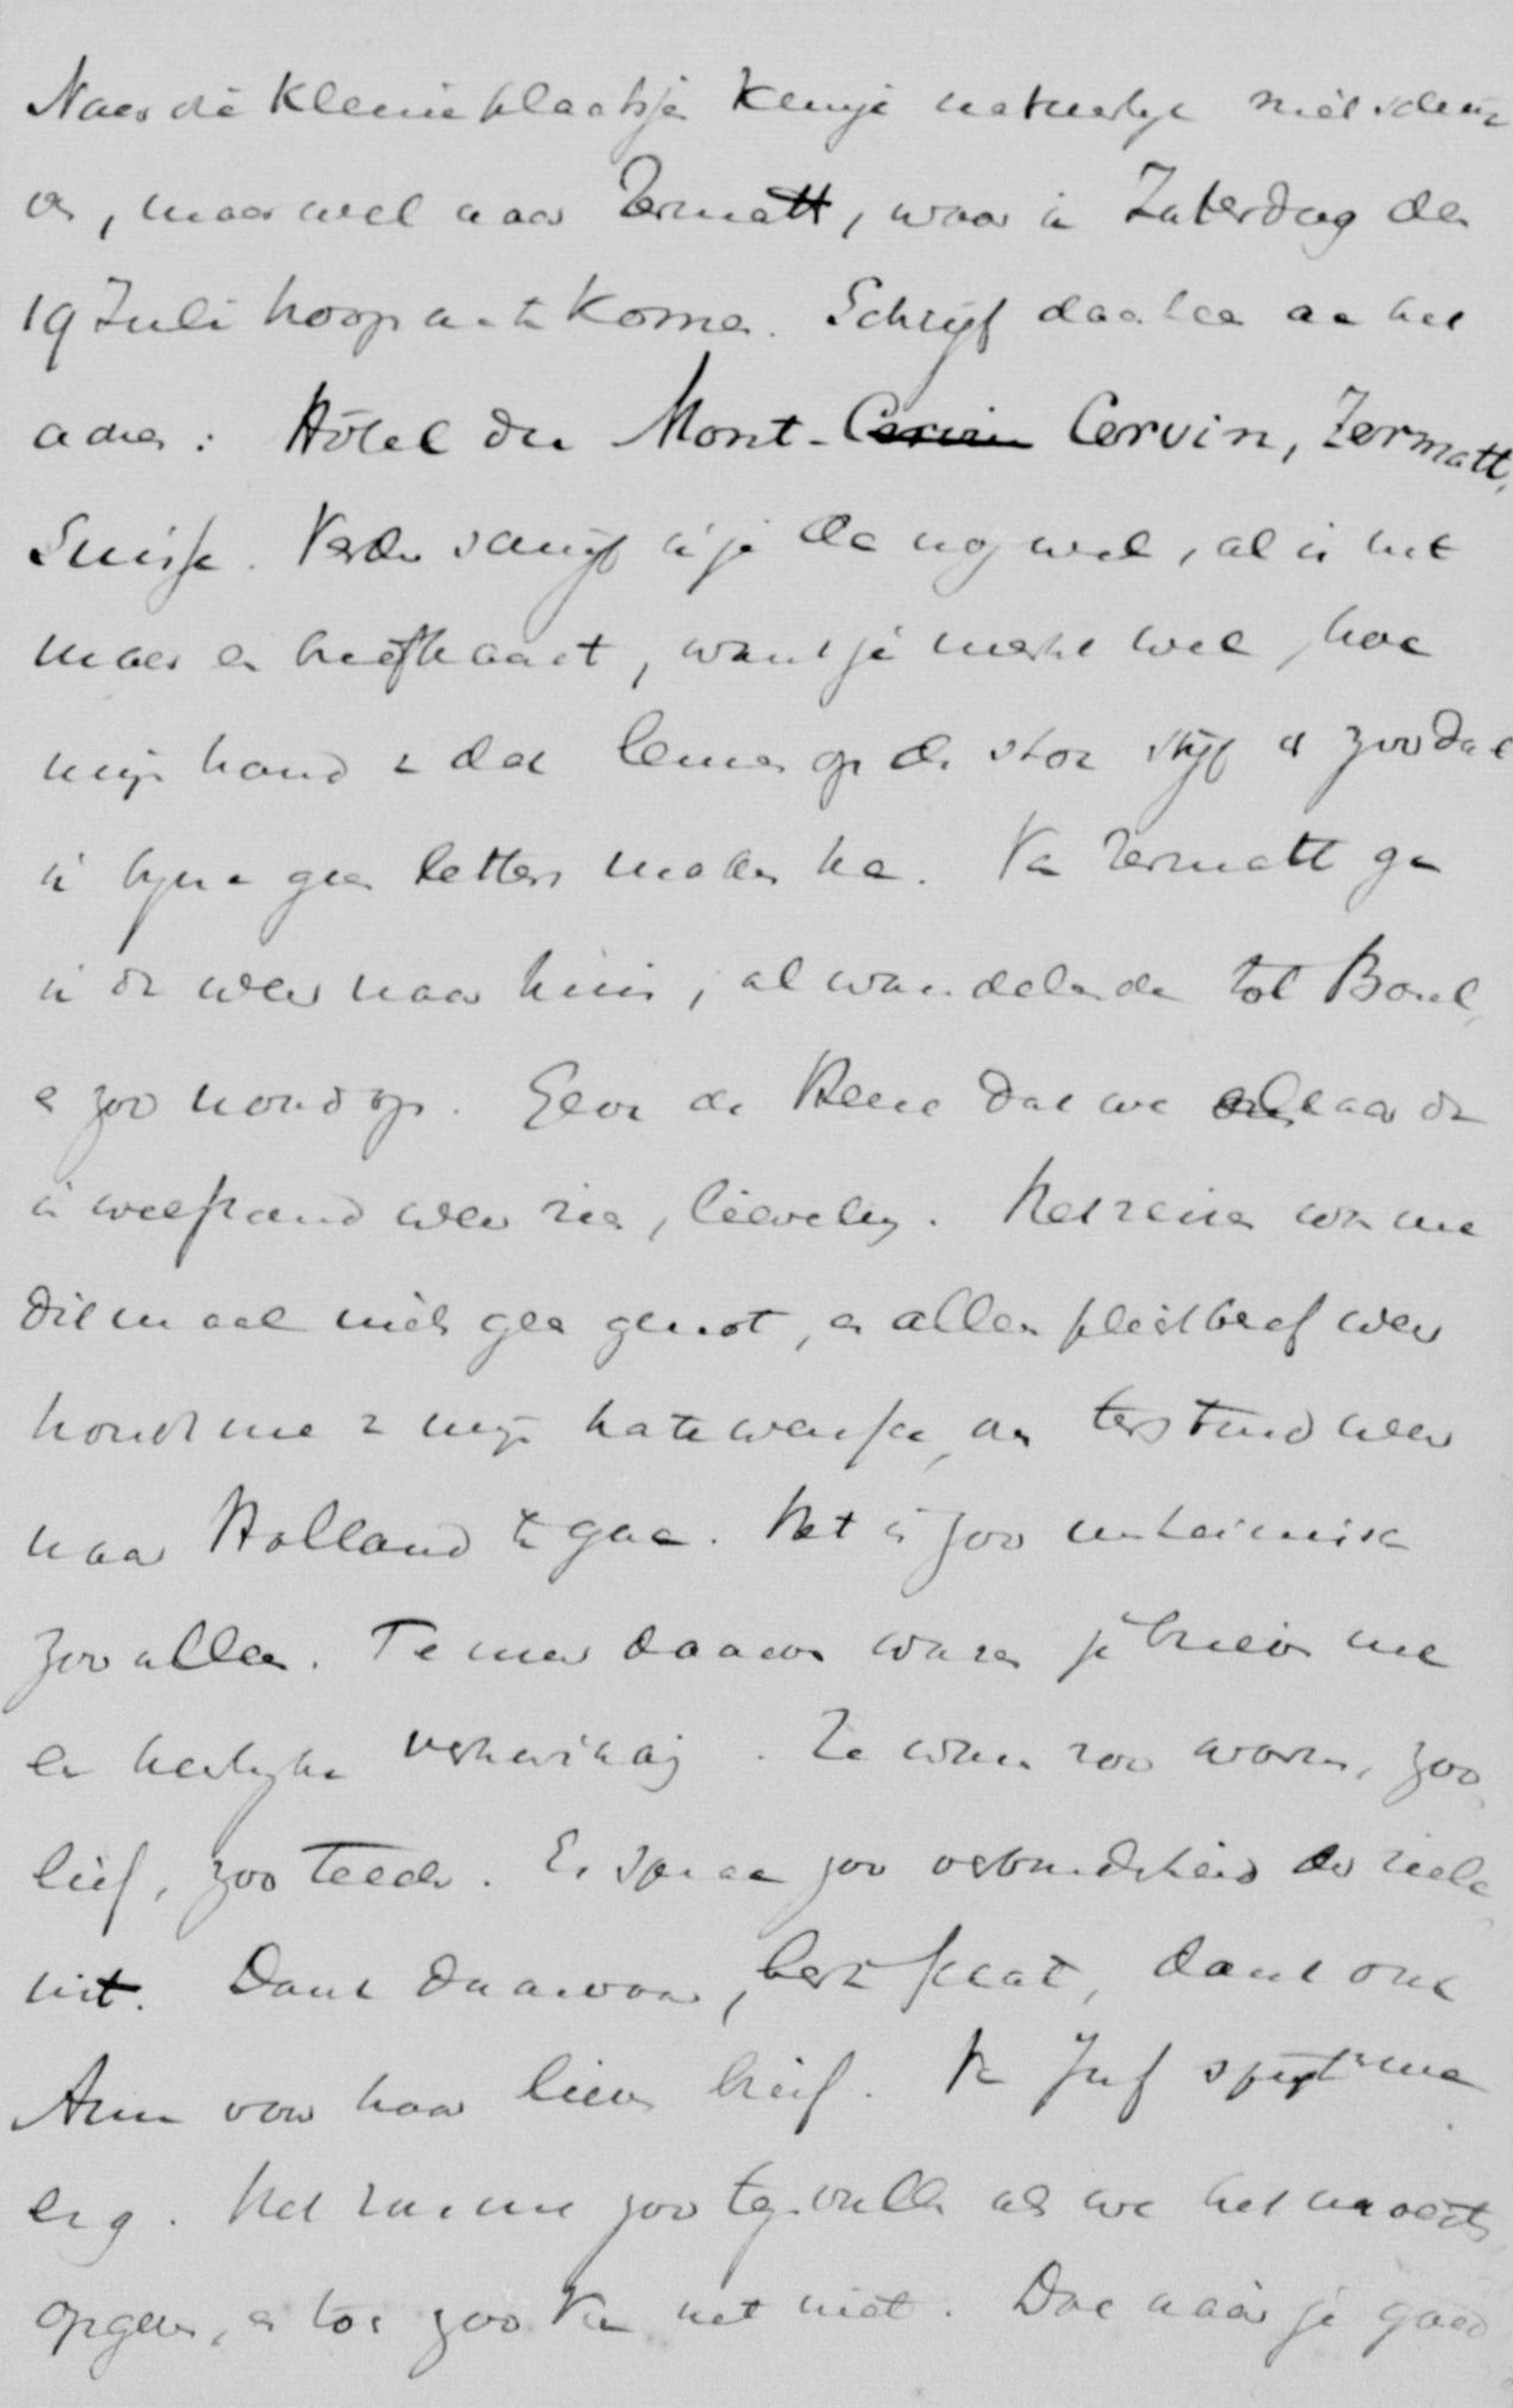 Naar die kleine plaatsjes kun je natuurlijk niet schrij-
ven, maar wel naar Zermatt, waar ik Zaterdag den
19 Juli hoop aan te komen. Schrijf daarheen aan het
adres: Hôtel du Mont-Cervin Cervin, Zermatt,
Suisse. Verder schrijf ik je dan nog wel, al is het
maar een briefkaart, want je merkt wel, hoe
mijn hand van dat leunen op den stok stijf is zoodat
ik bijna geen letters maken kan. Van Zermatt ga
ik dan weer naar huis, al wandelende tot Basel,
en zoo noord op. Geve de Heere dat we elkaar dan
in welstand weer zien, lieveling. Het reizen was me
ditmaal niet geen genot, en alleen plichtbesef weer-
houdt me van mijn kaatwensch, om terstond weer
naar Holland te gaan. Het is zoo unheimisch
zoo alleen. Te meer daarom waren je brieven me
een heerlijke verkwikking. Ze waren zoo warm, zoo
lief, zoo teeder. Er sprak zoo verbondenheid der ziele
uit. Dank daarvoor, beste schat, dank ook
Ann voor haar lieven brief. Van Juf spijt me
erg. Het zou me zoo tegenvallen als we het moesten
opgeven, en toch zoo kan het niet. Doe naar je goed